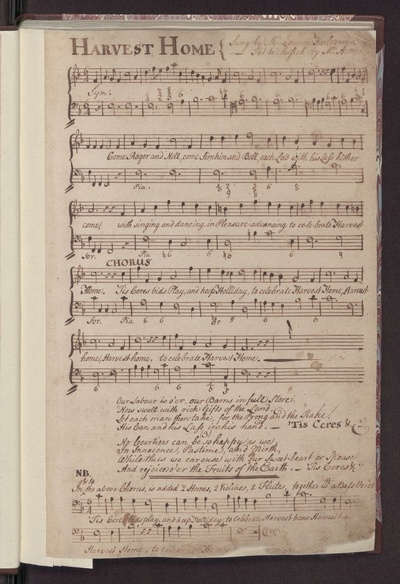 HARVEST HOME { Sung by Mr. Lowe
Set to Musick by Mr. Arne
Sym:
Come Roger and Nell, come Simkin and Bell each Lad with his Lass hither
Pia.
come, with singing and dancing in Pleasure advancing to celebrate Harvest
For. Pia
CHORUS
Home. 'Tis Ceres bids Play, and keep Holliday, to celebrate Harvest Home, Harvest
For. Pia
home, Harvest home, to celebrate Harvest Home.
Our Labour is o'er, our Barns in full Store
Now swell with rich Gifts of the Land
Let each man then take, for the Prong and the Rake,
His Can and his Lass in his hand. 'Tis Ceres &c
No Courtiers can be so happy as we
In Innocence, Pastime, and Mirth,
While thus we carouse with our Sweet-heart or Spouse
And rejoice o'er the Fruits of the Earth. 'Tis Ceres &c
NB.
In the above Chorus, is added 2 Horns, 2 Violins, 2 Flutes, together wth a Bass Voice
'Tis Ceres bids play, and keep Holliday, to Celebrate Harvest home Harvest
Harvest Home, to celebrate